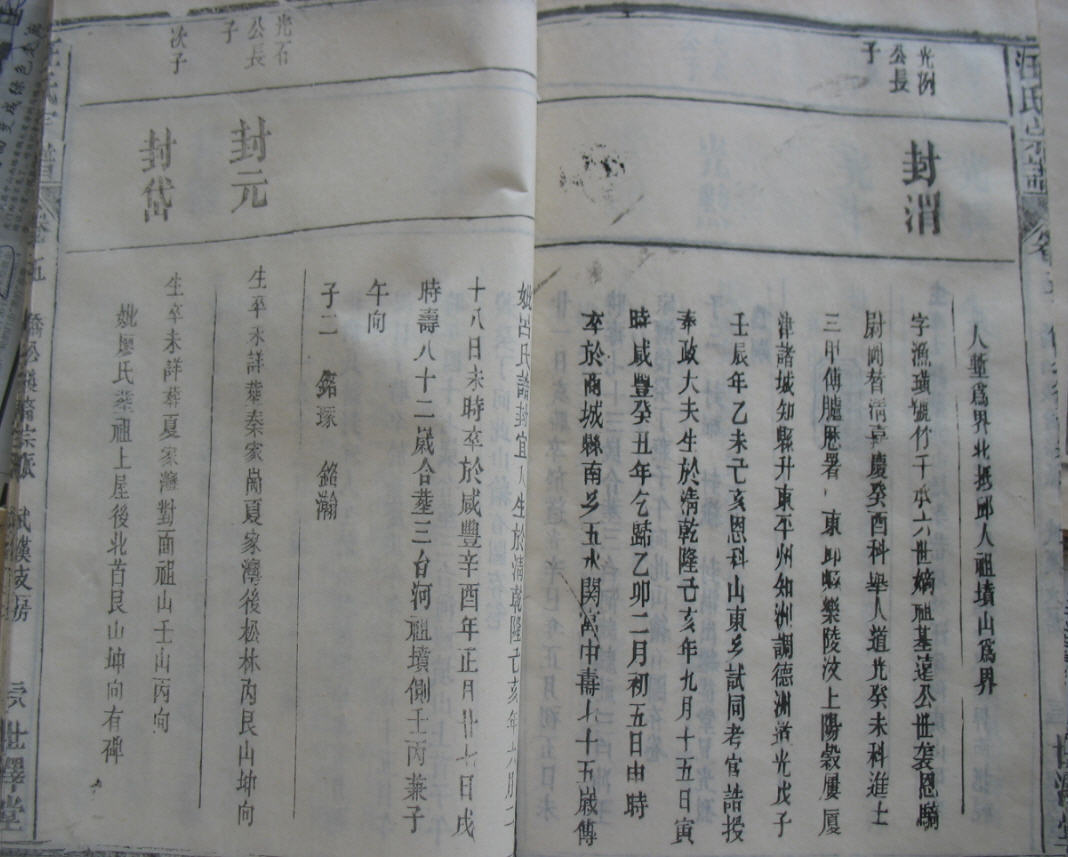 汪氏宗譜
世澤堂
光例公長子
封渭
人塹爲界北抵邱人祖墳山爲界
字漁璜號竹千承六世嫡祖基遠公世袭恩騎
尉嗣替清嘉慶癸酉科舉人道光癸未科進士
三甲傳臚歷署東縣樂陵汶上陽穀屢厦
津諸城知縣升東平州知洲調德洲道光戊子
壬辰年乙未己亥恩科山東乡試同考官誥授
奉政大夫生於清乾隆己亥年九月十五日寅
時咸豐癸丑年乞歸乙卯二月初五日由時
卒於商城縣南乡五水関富中壽七十五歲傳
妣呂氏誥封宜人生於清乾隆己亥年六月二
十八日未時卒於咸豐辛酉年正月廿七日戌
時壽八十二歲合塟三台河祖墳側壬丙兼子
午向
子二 銘琢 銘瀚
光石公長子
封元
生卒未詳葬秦家崗夏家灣後松林内艮山坤向
次子
封岱
生卒未詳葬夏家灣對面祖山壬山丙向
妣廖氏葬祖上屋後北苔艮山坤向有碑
汪氏宗譜
卷五
支房
世澤堂